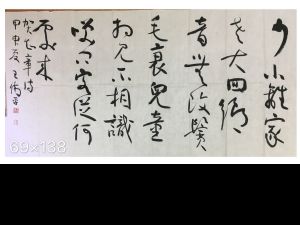 少小離家
老大回鄉
音無改鬢
毛衰兒童
相見不相識
笑問客從何
處來
賀知章詩
甲申夏王
69×138